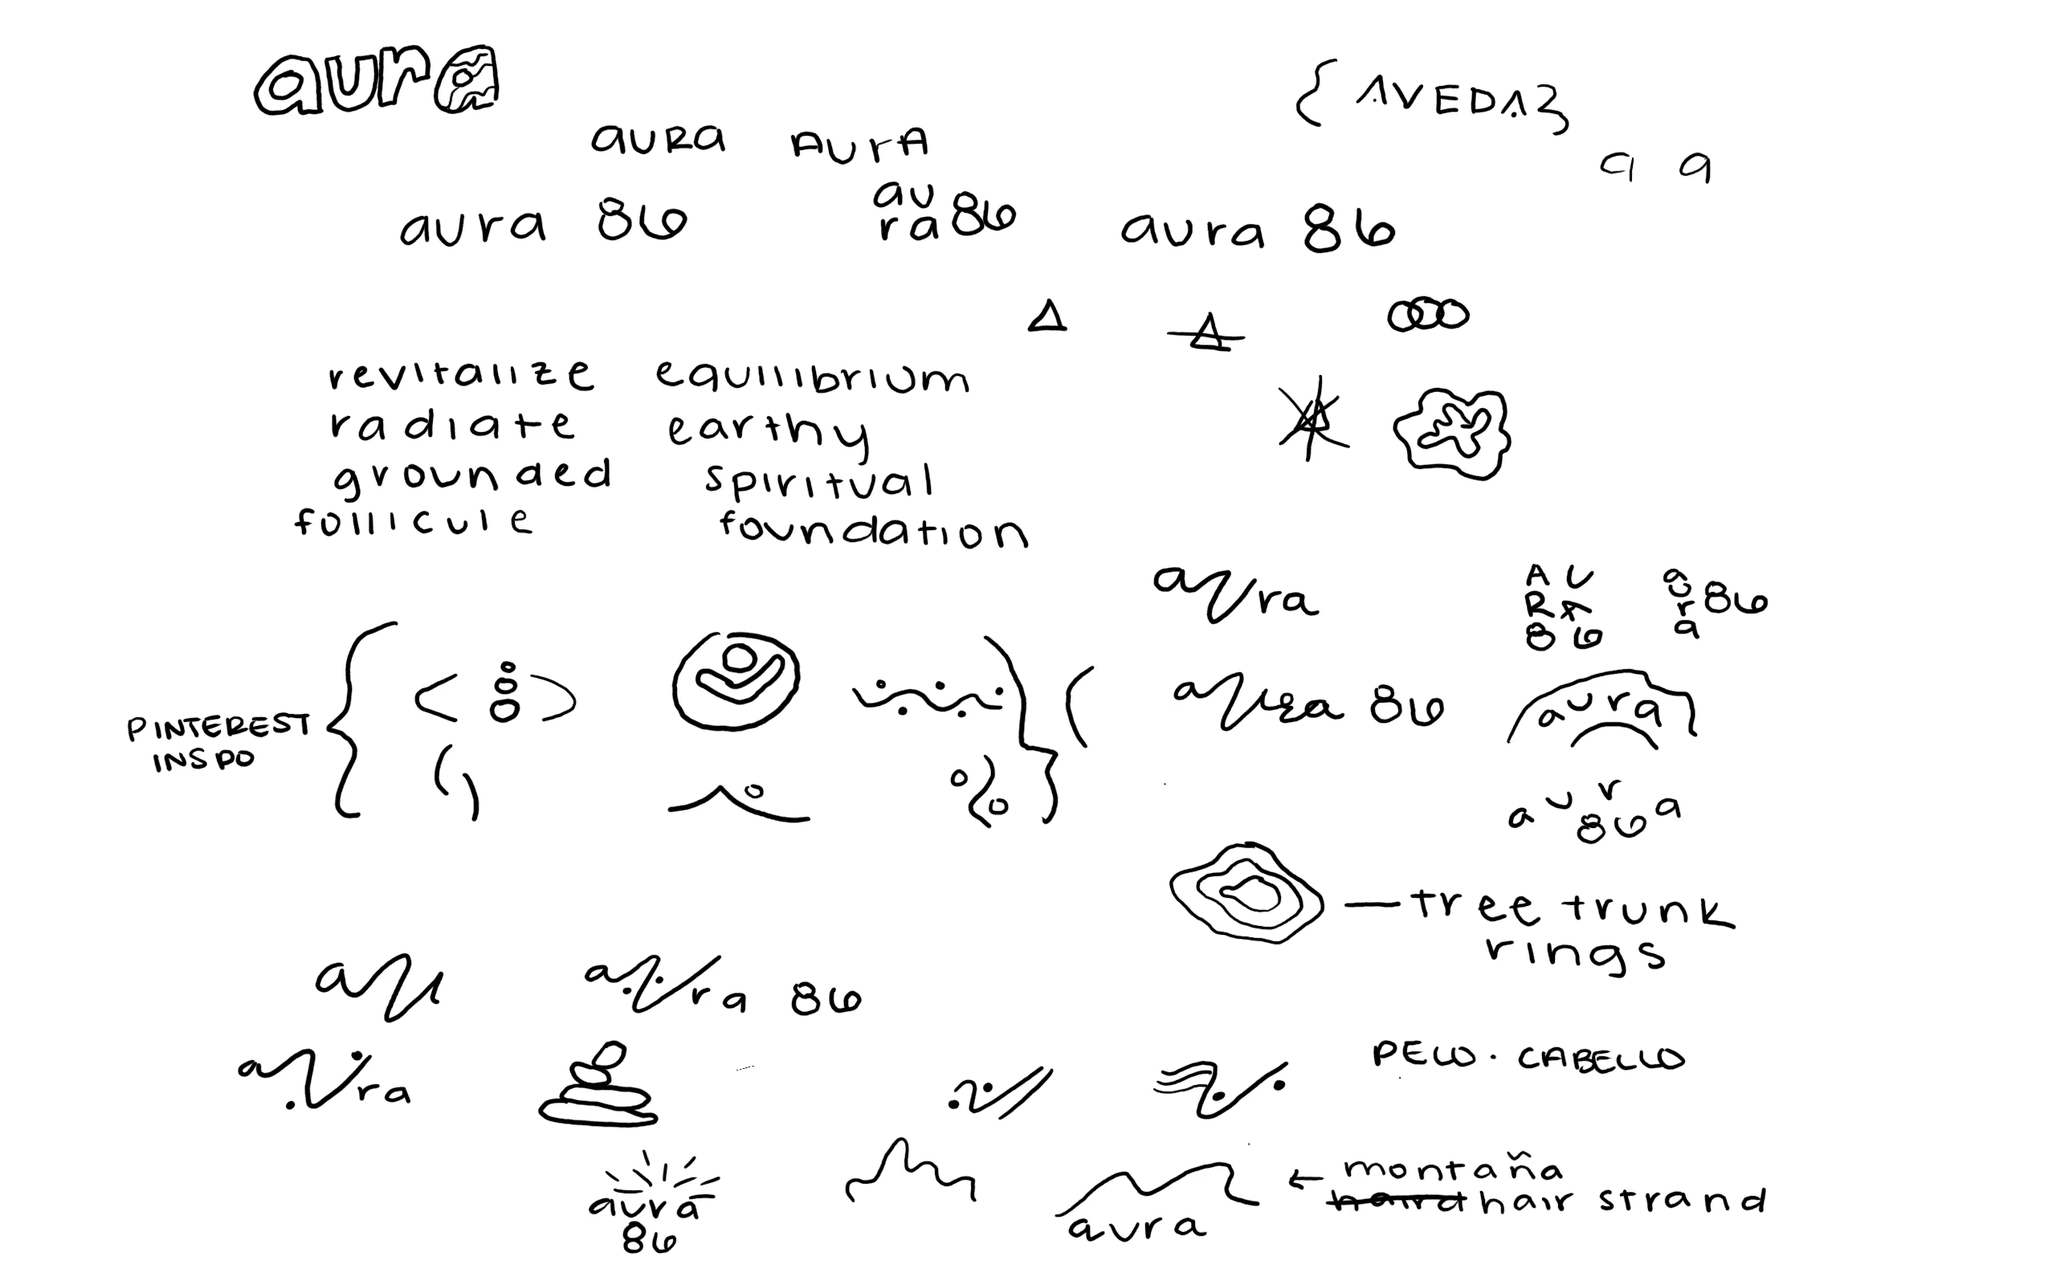 aura
{ AVEDA }
aURa AUrA
a a
aura 86
au
ra 86
aura 86
revitalize equilibrium
radiate earthy
grounded spiritual
follicule foundation
aura
A U
R A
8 6
a
u
r
a 86
PINTEREST
INSPO
aura 86
aura
aura
86
tree trunk
rings
au
aura 86
aura
PELO · CABELLO
montaña
hair strand
aura
86
aura